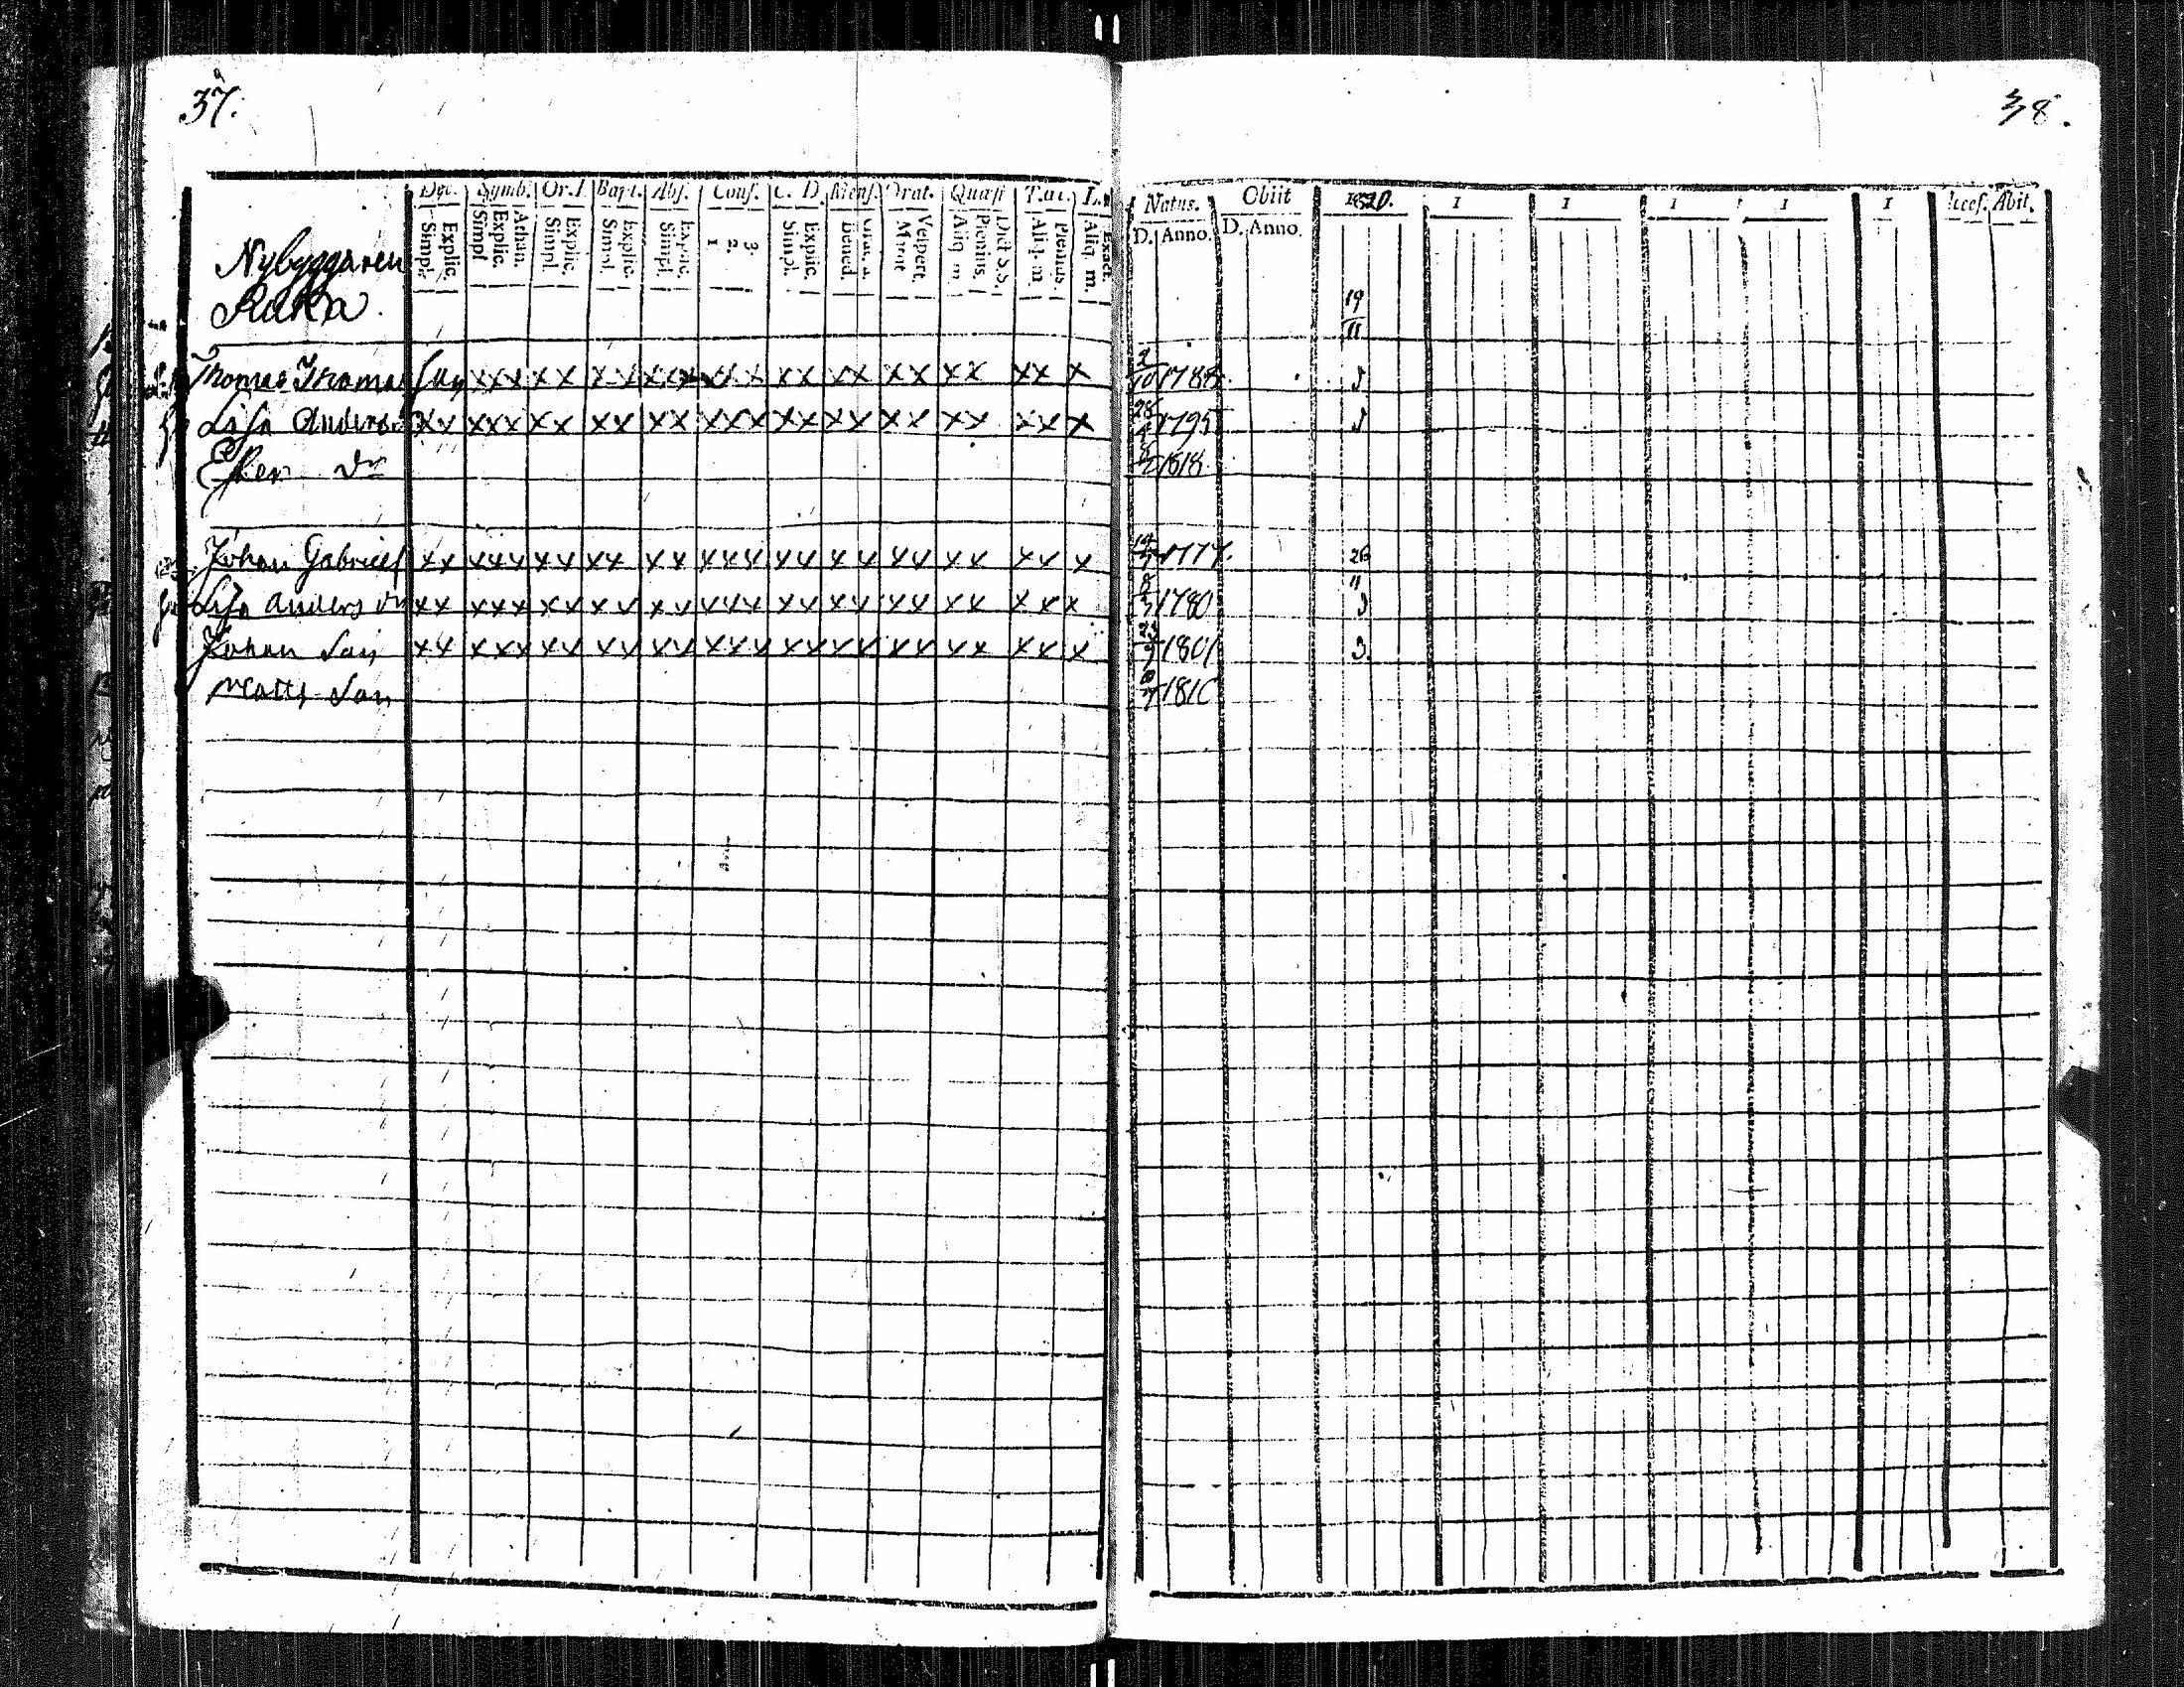 37.
38.
Dec. Symb. Or.D Bapt. Abs. Conf. C. D. Mens. Orat. Quæst T.œc.
Natus. Obiit 1820. 1 1 1 1 1 Acces. Abit.
Simpl. Explic. Simpl Explic. Athan. Simpl. Explic. Simpl. Explic. Simpl. Explic. 1 2. 3. Simpl. Explic. Bened. Vespert. Aliq. m Plenius. Dict S.S. Aliq. m Plenius. Aliq. m. Exact.
D. Anno. D. Anno.
Nybyggaren
Ruka.
19/11
Thomas Thomas Son xxx xx xx xxx xxx xx xx xx xx xx x 2/10 1788. 3
Lisa Anders xx xxx xx xx xx xxx xx xx xx xx xx x 28/4 1795 3
Ester Dr 8/2 1818.
Johan Gabriel xx xxx xx xx xx xxx xx xx xx xx xx x 19/7 1777. 26/11
Lisa Anders Dr xx xxx xx xx xx xxx xx xx xx xx xx x 8/3 1780 3
Johan Son xx xxx xx xx xx xxx xx xx xx xx xx x 1801 3.
Matts Son 1810